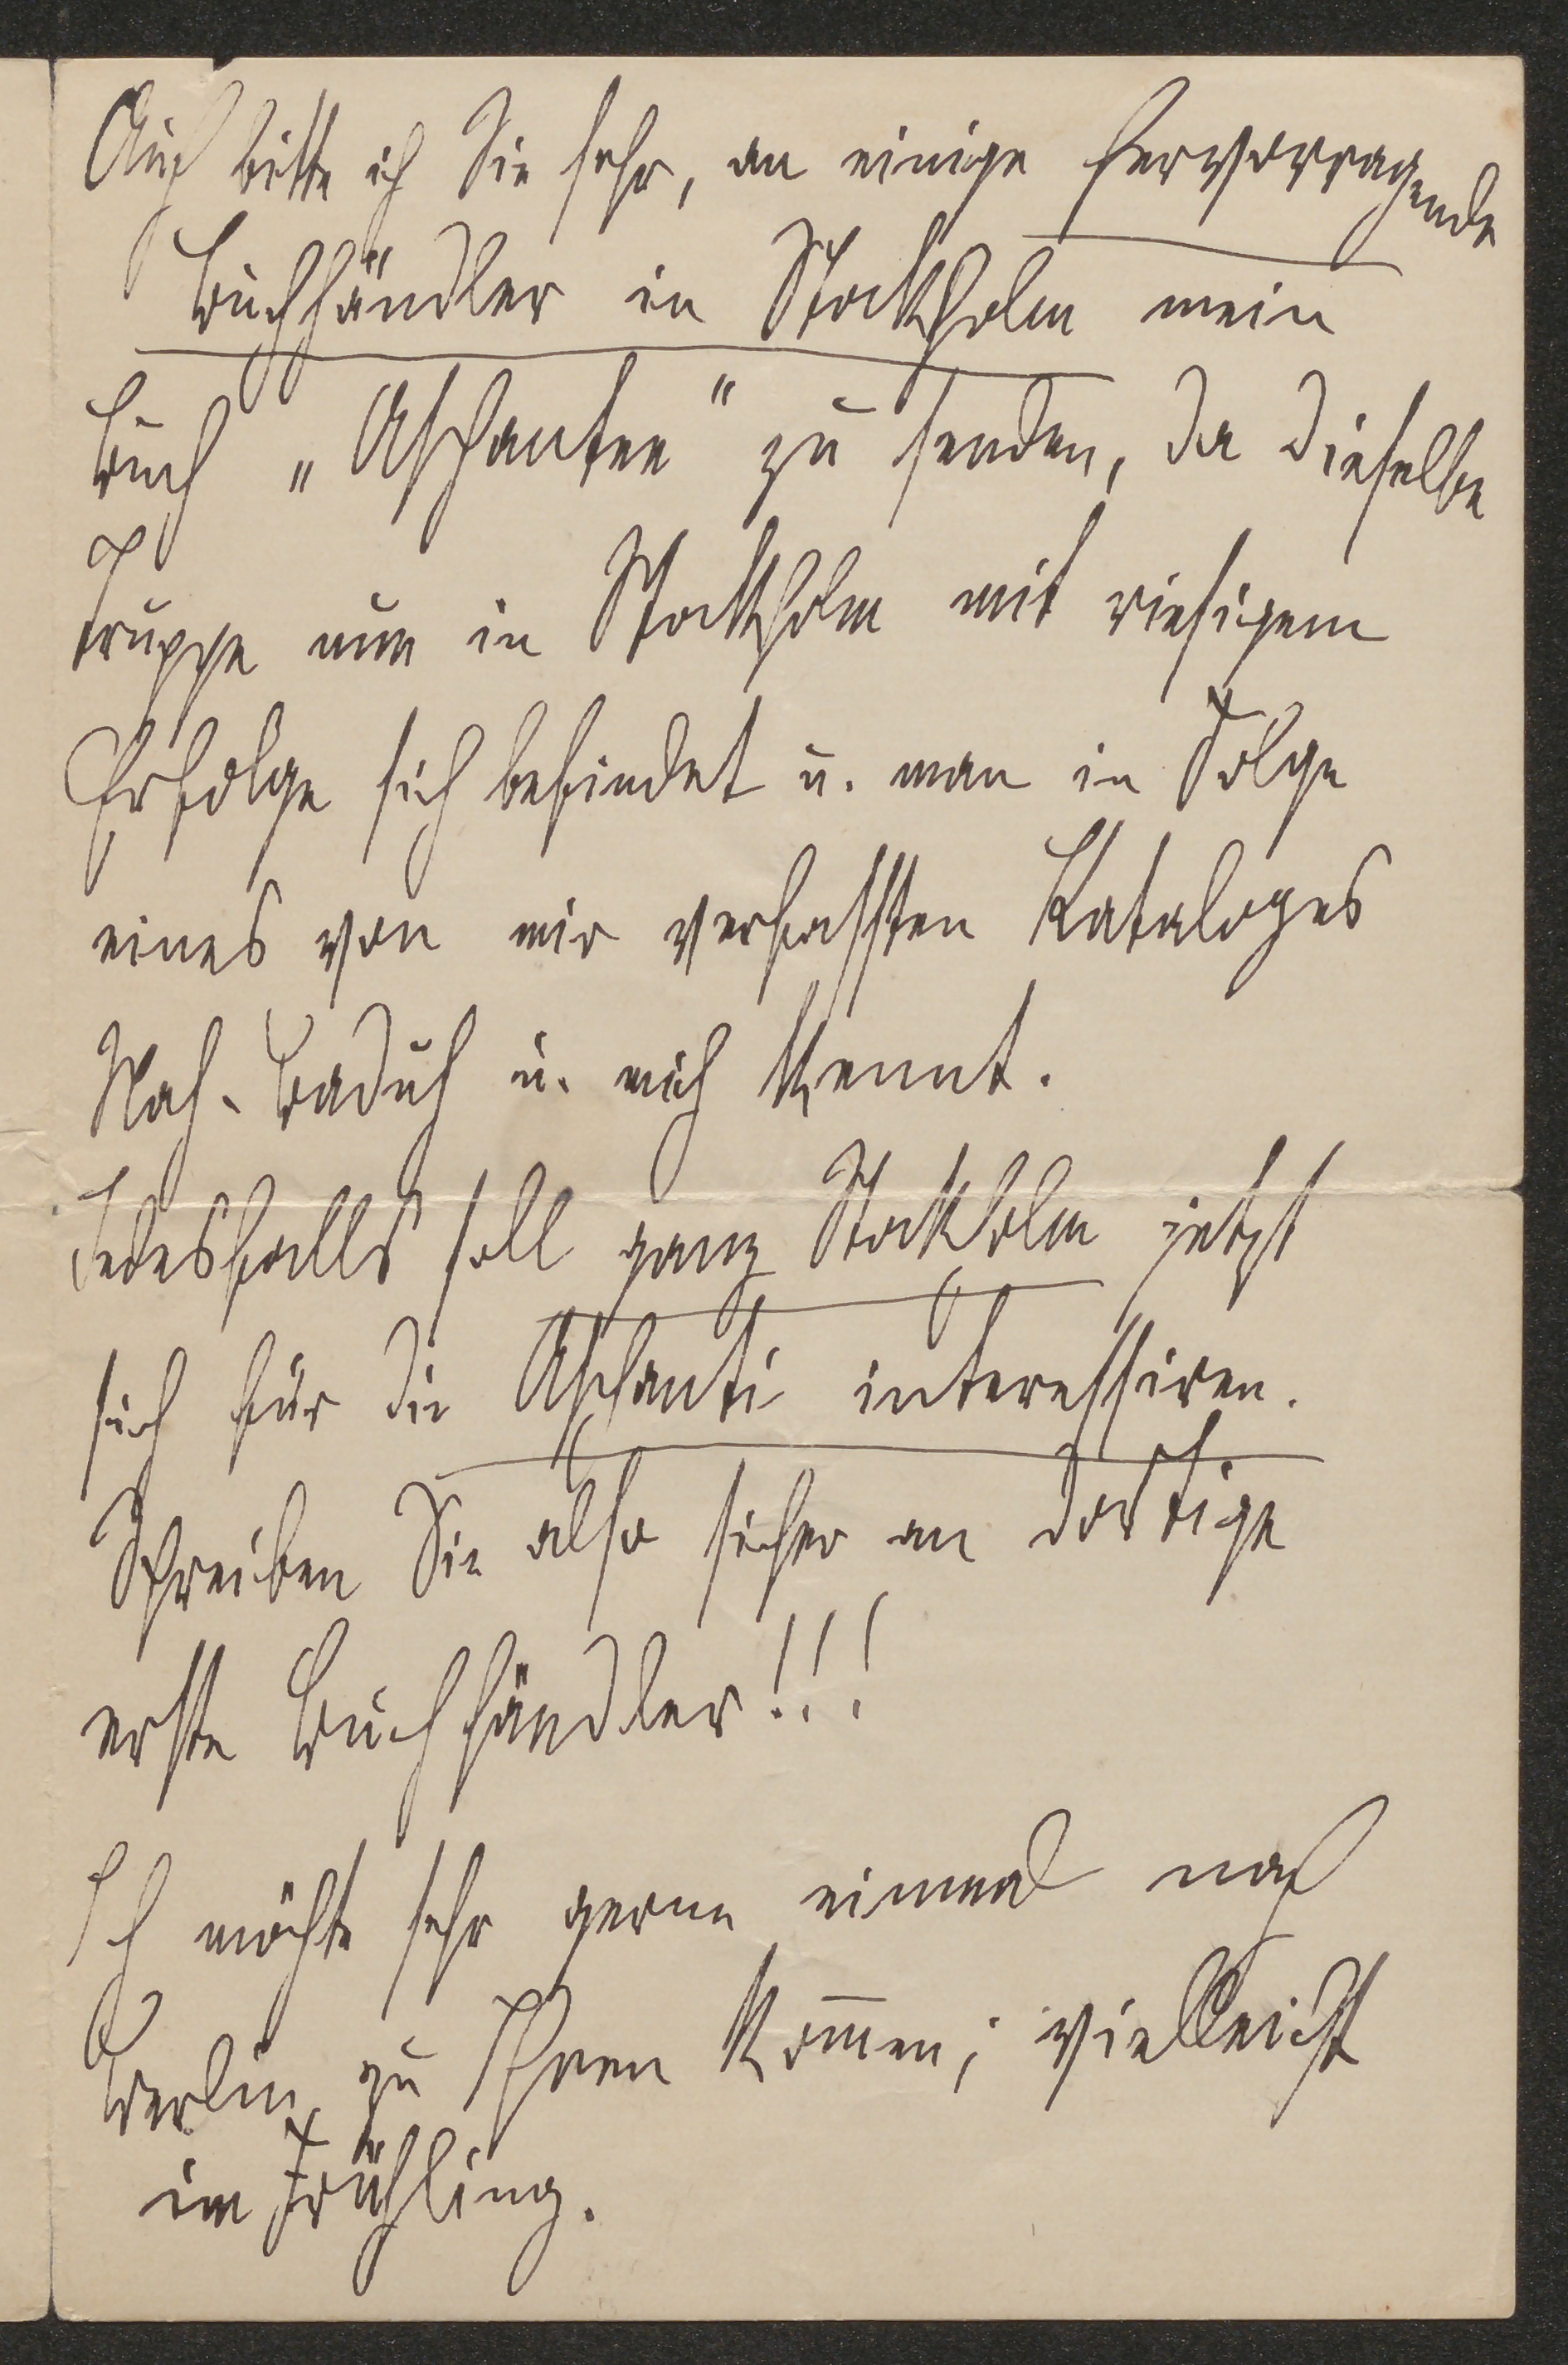 Auch bitte ich Sie sehr, an einige hervorragende
Buchhändler in Stockholm mein
Buch „Ashantee" zu senden, da dieselbe
Truppe nun in Stockholm mit riesigem
Erfolge sich befindet u. man in Folge
eines von mir verfassten Kataloges
Nah-Badûh u. mich kennt.
Jedesfalls soll ganz Stockholm jetzt
sich für die Ashanti interessiren.
Schreiben Sie also sicher an dortige
erste Buchhändler!!!
Ich möchte sehr gerne einmal nach
Berlin, zu Ihnen kom̅en; vielleicht
im Frühling.